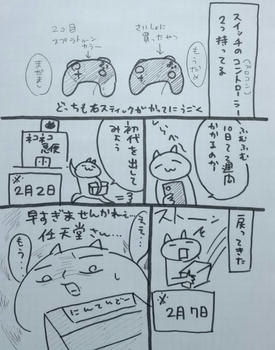 スイッチのコントローラー
(プロコン)
2つ持ってる
さいしょに
買ったやつ
もうだめ
2コ目
スプラトゥーン
カラー
まだまし
どっちも右スティックがかってにうごく
ふむふむ
10日〜2週間
かかるのか
しらべ
初代を出して
みよう
ネコネコ
急便
※2月2日
戻ってきた
ストーン
※2月7日
早すぎませんかねえ…
任天堂さん…
ええ…
もう…
にんてんどー